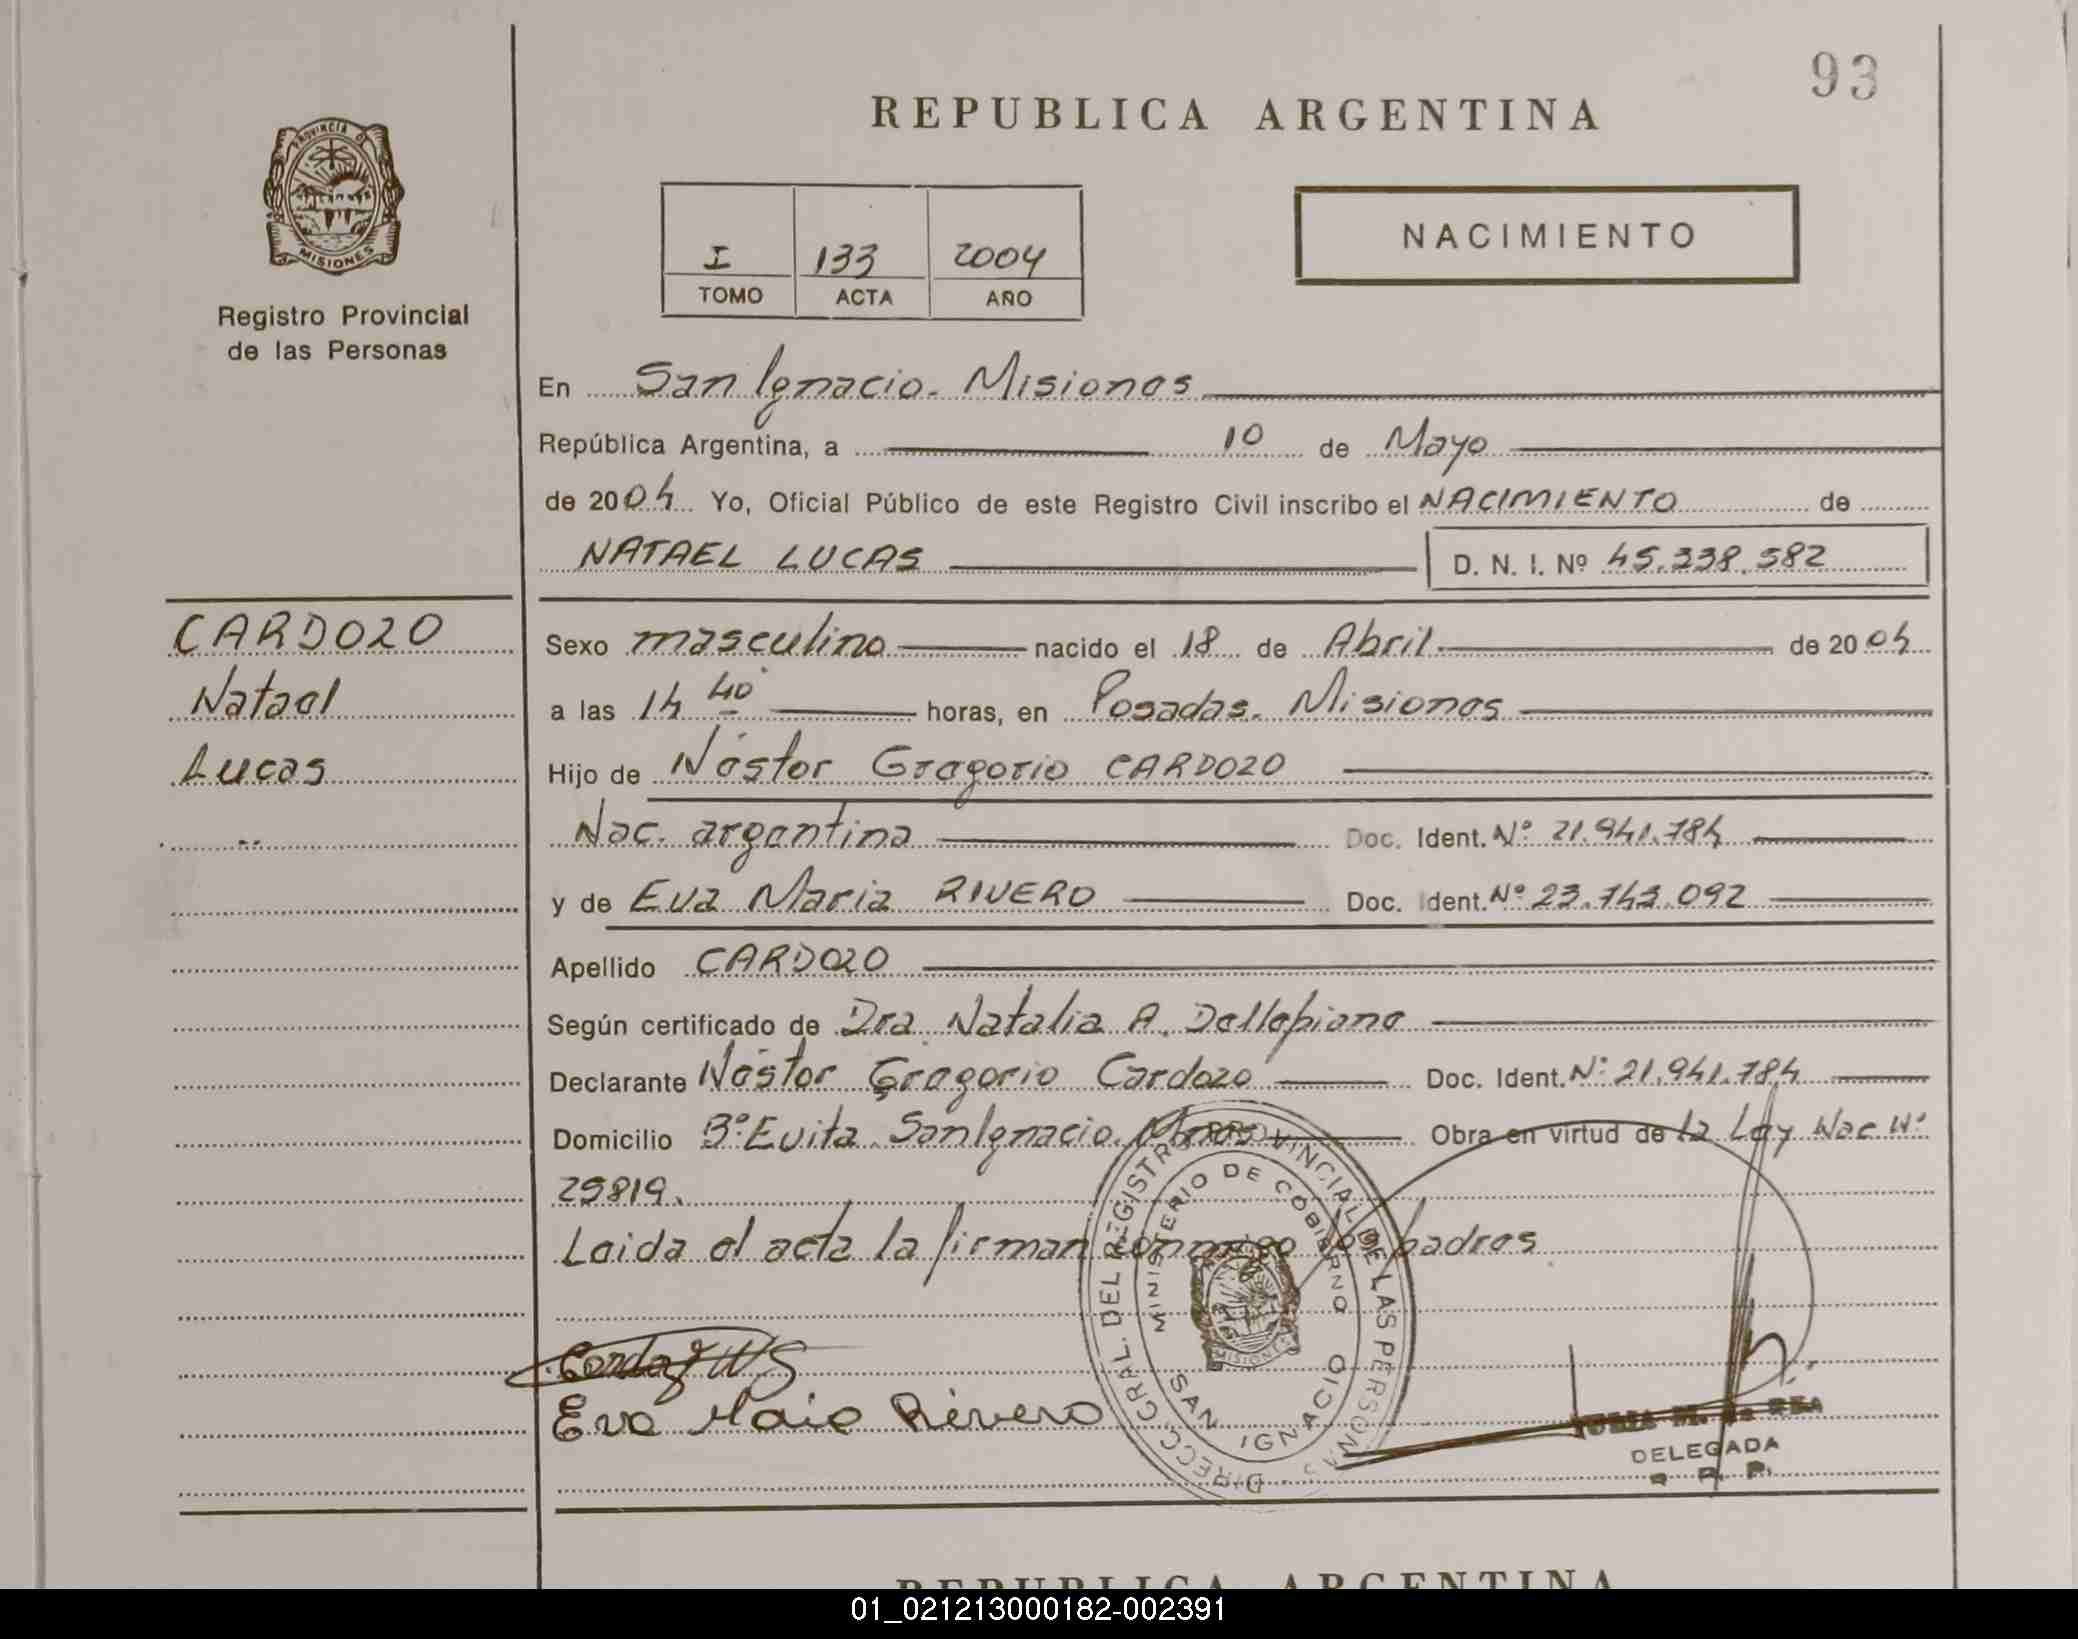 93
REPUBLICA ARGENTINA
PROVINCIA DE
MISIONES
Registro Provincial
de las Personas
I 133 2004
TOMO ACTA AÑO
NACIMIENTO
En San Ignacio. Misiones
República Argentina, a 10 de Mayo
de 2004 Yo, Oficial Público de este Registro Civil inscribo el NACIMIENTO de
NATAEL LUCAS D. N. I. Nº 45.338.582
CARDOZO
Natael
Lucas
Sexo masculino nacido el 18 de Abril de 2004
a las 14 40 horas, en Posadas. Misiones
Hijo de Néstor Gregorio CARDOZO
Nac. argentina Doc. Ident. Nº 21.941.784
y de Eva Maria RIVERO Doc. Ident. Nº 23.743.092
Apellido CARDOZO
Según certificado de Dra. Natalia A. Dellepiane
Declarante Néstor Gregorio Cardozo Doc. Ident. Nº 21.941.784
Domicilio Bº Evita San Ignacio. Mnes Obra en virtud de la Ley Nac Nº
25819.
Leida el acta la firman conmigo los padres
Eva Maria Rivero
DIRECC. GRAL. DEL REGISTRO PROVINCIAL DE LAS PERSONAS
MINISTERIO DE GOBIERNO
MISIONES
SAN IGNACIO
DELEGADA
R. P. P.
REPUBLICA ARGENTINA
01_021213000182-002391